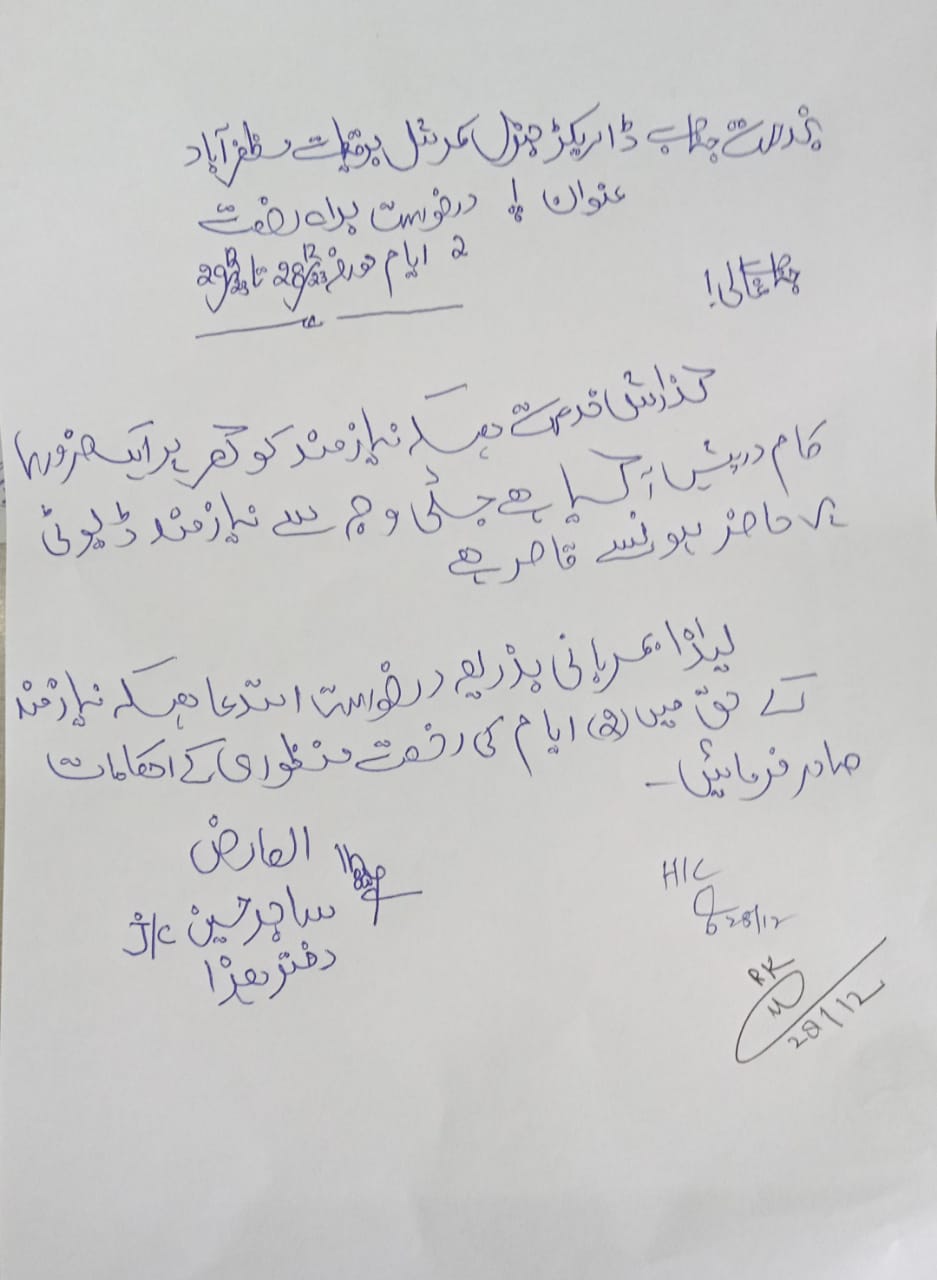 بخدمت جناب ڈائریکٹر جنرل کمرشل برقیات مظفرآباد
عنوان ! درخواست براہ رخصت
2 ایام مورخہ 28/12/23 تا 29/12/23
جناب عالی!
گذارش خدمت ہیکہ نیازمند کو گھر پر ایک ضروری
کام درپیش آ گیا ہے جسکی وجہ سے نیازمند ڈیوٹی
پر حاضر ہونسے قاصر ہے
لہذا مہربانی بذریعہ درخواست استدعا ہیکہ نیازمند
کے حق میں (2) ایام کی رخصت منظوری کے احکامات
صادر فرمائیں -
العارض
ساجد حسین J/C
دفتر ھذا
H/C
28/12
RK
28/12